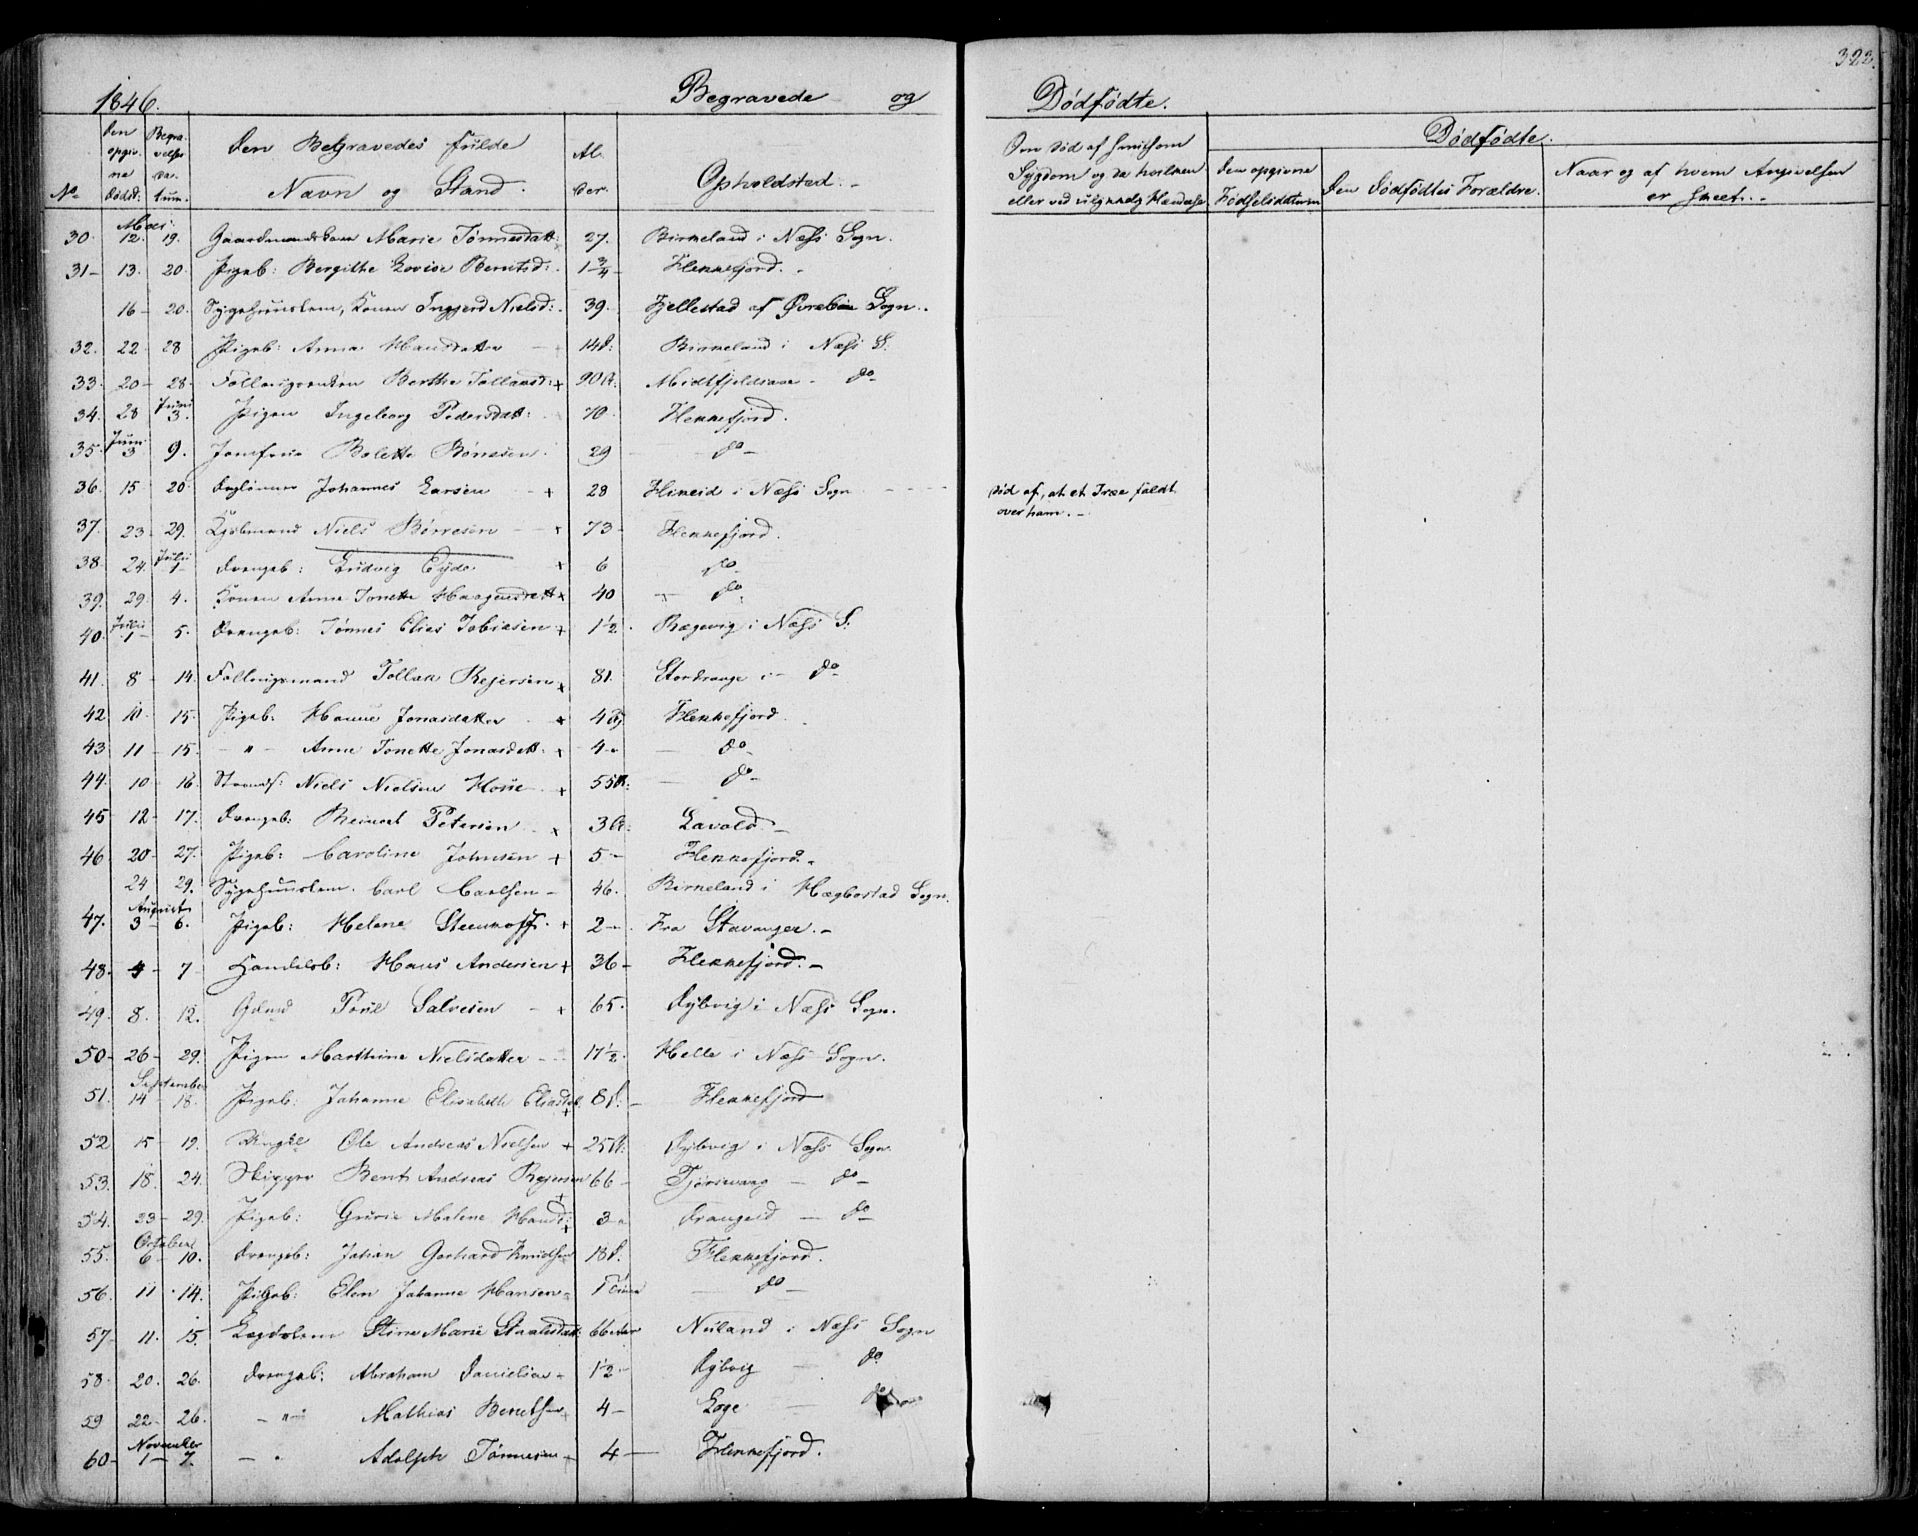 322.
1846. Begravede og Dödfödte.
No. Den opgivne Dödsd: Begravelses Datum. Den Begravedes fulde Navn og Stand. Alder. Opholdsted. Om död af smitsom Sygdom og da hvilken eller ved ulykkelig Hændelse Dödfödte.
Den opgivne Födselsdatum Den Dödfödtes Forældre. Naar og af hvem Anmeldelsen er skeet.
30. Mai 12. 19. Gaardmandskone Marie Tönnesdatt: 27. Birkeland i Næss Sogn.
31 13. 20. Pigeb: Bergithe Lovise Berntsd: 1 3/4 Flekkefjord.
16 20. Sygehuuslem, Konen Ingjerd Nielsd: 39. Fjellestad af Øvrebøe Sogn.
32. 22 28 Pigeb: Anna Hansdatter 14d: Birkeland i Næss S.
33. 20 28. Berthe Tollaksd: + 90 A: do
34. 28 Juni 3. Pigen Ingeborg Pedersdatt: 70. Flekkefjord.
35. Juni 3 9. Jomfrue Bolette Börresen 29 do
36. 15 20. Daglönner Johannes Larsen + 28 i Næss Sogn död af, at et Træe faldt over ham.
37. 23 29. Kjöbmand Niels Börresen + 73 Flekkefjord.
38. 24. Juli 1 Drengeb: Ludvig Eyde + 6 do
39. 29. 4. Konen Anne Tonette Haagensdatt + 40 do
40. Juli 1 5. Drengeb: Tönnes Elias Tobiasen + 1 1/2. Rægevig i Næss S:
41. 8 14. Tollak Rejersen + 81. Stordrange i do
42. 10. 15. Pigeb: Hanne Jonasdatter + 4 Flekkefjord.
43 11 15. " Anne Tonette Jonasdatt. + 4 do
44. 10 16. Strands: Niels Nielsen + 55 A: do
45 12 17. Drengeb: Reinert Petersen + 3 A: Lavold.
46 20 27. Pigeb: Caroline Johnsen + 5 Flekkefjord.
24 29. Sygehuuslem. Carl Carlsen 46. Birkeland i Hægbostad Sogn.
47. August 3 6. Pigeb: Helene Steenhoff. + 2 Fra Stavanger.
48. 4 7 Handelsb: Hans Andersen + 36 Flekkefjord.
49. 8. 12. Gdmd Poul Salvesen + 65. Dybvig i Næss Sogn.
50 26 29. Pigen Marthine Nielsdatter 17 1/2. Helle i Næss Sogn.
51. September 14 18. Pigeb: Johanne Elisabeth + 8d. Flekkefjord
52 15 19. Ungkl Ole Andreas Nielsen + 25 A: Dybvig i Næss Sogn
53. 18. 24. Skipper Bernt Andreas Rejersen + 66 do
54. 23 29. Pigeb: Gurie Malene Hansd: + 3 Drangeid do
55. October 6 10. Drengeb: Johan Gerhard Knudsen 18d. Flekkefjord.
56. 11 14. Pigeb: Elen Johanne Hansen 1 do
57 11. 15. Lægdslem Stine Marie 66 Aar Nuland i Næss Sogn
58. 20. 26. Drengeb: Abraham Danielsen 1 1/2 Dybvig do
59 22 26. " Mathias Berntsen 4 Loge do
60 November 1 7. " Adolph Tönnesen 4 Flekkefjord.